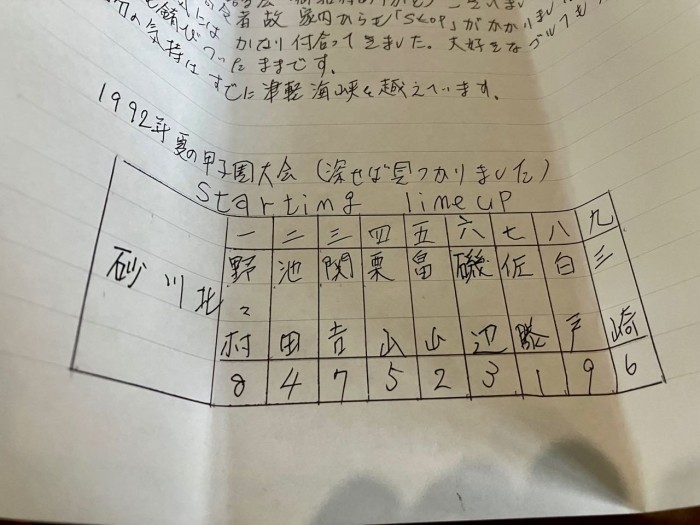 「Stop」がかかりまし
かなり付合ってきました。大好きなゴルフも
の気持はすでに津軽海峡を越えています。
1992年夏の甲子園大会(深せば見つかりました)
Starting lineup
一 二 三 四 五 六 七 八 九
砂川北 野々村 池田 関吉 栗山 畠山 磯辺 佐藤 白戸 三崎
8 4 7 5 2 3 1 9 6